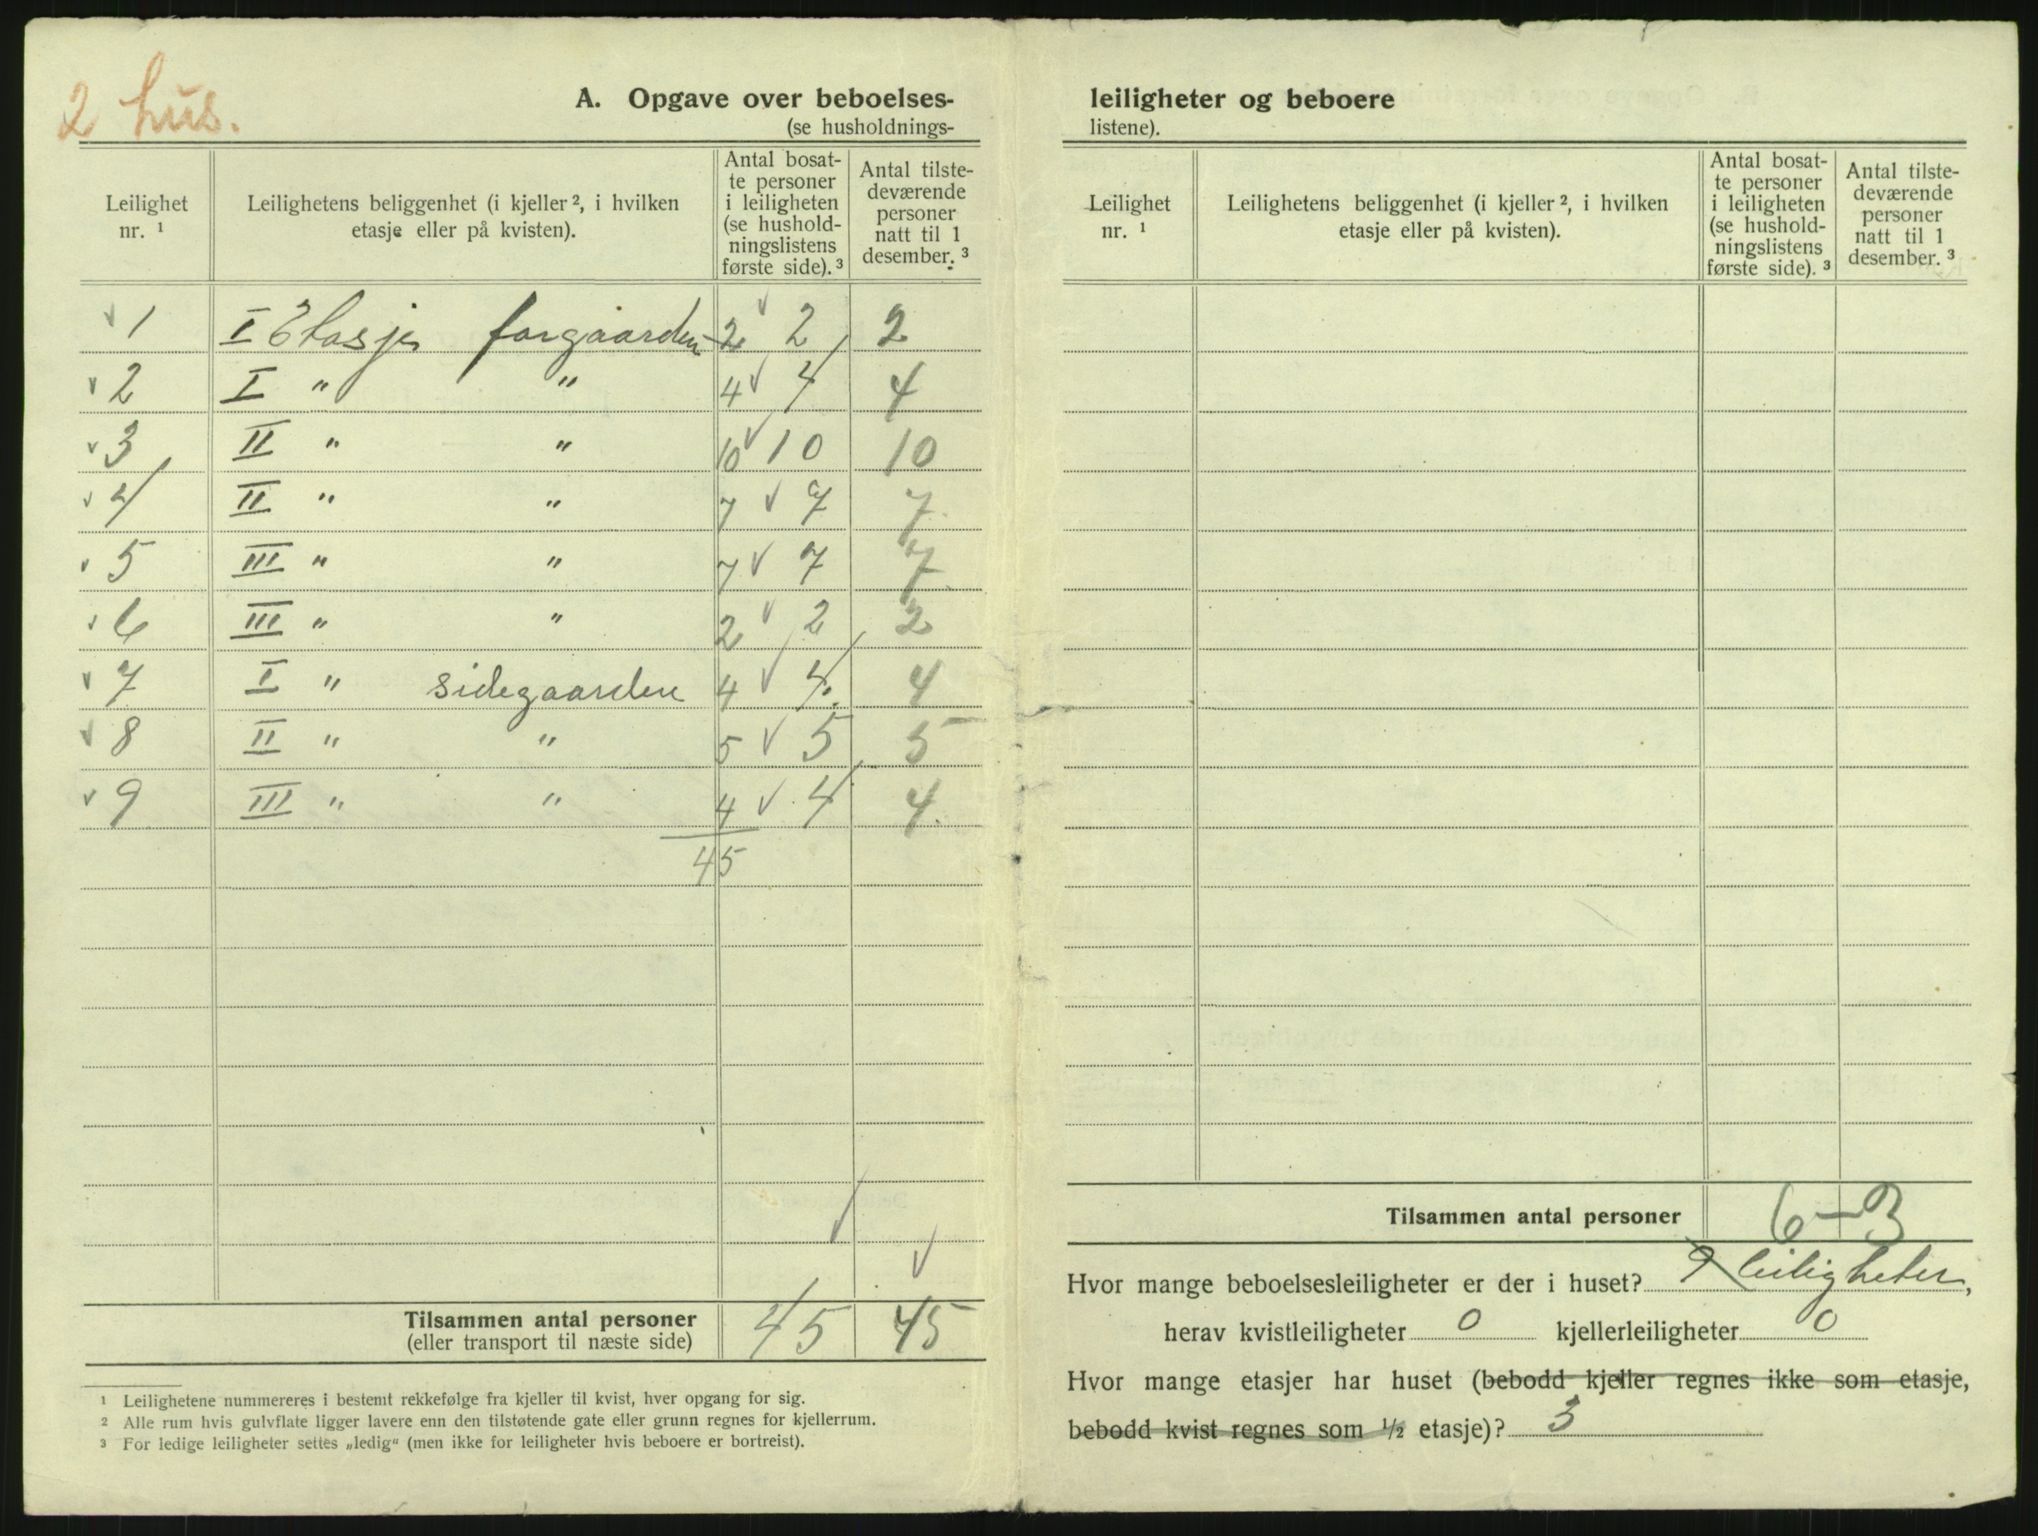 2 hus.
A. Opgave over beboelses-
(se husholdnings-
Leilighet nr. ¹
Leilighetens beliggenhet (i kjeller ², i hvilken etasje eller på kvisten).
Antal bosat-
te personer
i leiligheten
(se hushold-
ningslistens
første side). ³
Antal tilste-
deværende
personer
natt til 1
desember. ³
1 I Etasje forgaarden 2 2 2
2 I " " 4 4 4
3 II " " 10 10 10
4 II " " 7 7 7
5 III " " 7 7 7
6 III " " 2 2 2
7 I " sidegaarden 4 4. 4
8 II " " 5 5 5
9 III " " 4 4 4.
45
Tilsammen antal personer 45 45
(eller transport til næste side)
¹ Leilighetene nummereres i bestemt rekkefølge fra kjeller til kvist, hver opgang for sig.
² Alle rum hvis gulvflate ligger lavere enn den tilstøtende gate eller grunn regnes for kjellerrum.
³ For ledige leiligheter settes „ledig“ (men ikke for leiligheter hvis beboere er bortreist).
leiligheter og beboere
listene).
Leilighet nr. ¹
Leilighetens beliggenhet (i kjeller ², i hvilken etasje eller på kvisten).
Antal bosat-
te personer
i leiligheten
(se hushold-
ningslistens
første side). ³
Antal tilste-
deværende
personer
natt til 1
desember. ³
Tilsammen antal personer 6-3
Hvor mange beboelsesleiligheter er der i huset? 9 leiligheter,
herav kvistleiligheter 0 kjellerleiligheter 0
Hvor mange etasjer har huset (bebodd kjeller regnes ikke som etasje,
bebodd kvist regnes som ½ etasje)? 3